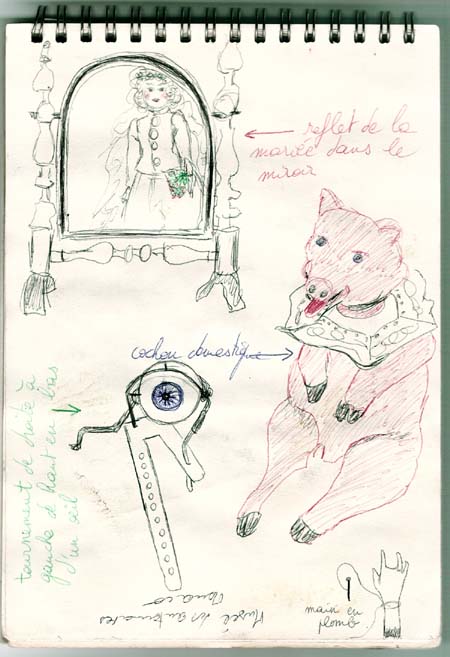 reflet de la
mariée dans le
miroir
cochon domestique
tournement de droite à
gauche de haut en bas
d'un œil
main en
plomb
Musée des automates
Monaco